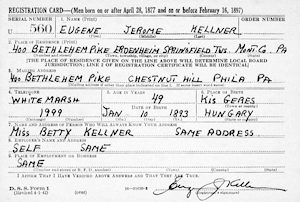 REGISTRATION CARD—(Men born on or after April 28, 1877 and on or before February 16, 1897)
SERIAL NUMBER 1. NAME (Print) ORDER NUMBER
U 560 EUGENE JEROME KELLNER
2. PLACE OF RESIDENCE (Print)
400 BETHLEHEM PIKE ERDENHEIM SPRINGFIELD TWS. MONT. CO. PA
(THE PLACE OF RESIDENCE GIVEN ON THE LINE ABOVE WILL DETERMINE LOCAL BOARD
JURISDICTION; LINE 2 OF REGISTRATION CERTIFICATE WILL BE IDENTICAL)
3. MAILING ADDRESS
400 BETHLEHEM PIKE CHESTNUT HILL PHILA. PA
4. TELEPHONE 5. AGE IN YEARS 6. PLACE OF BIRTH
WHITEMARSH 49 KIS GERES
DATE OF BIRTH
1999 JAN. 10 1893 HUNGARY
7. NAME AND ADDRESS OF PERSON WHO WILL ALWAYS KNOW YOUR ADDRESS
MISS BETTY KELLNER SAME ADDRESS.
8. EMPLOYER'S NAME AND ADDRESS
SELF SAME
9. PLACE OF EMPLOYMENT OR BUSINESS
SAME
I AFFIRM THAT I HAVE VERIFIED ABOVE ANSWERS AND THAT THEY ARE TRUE.
D. S. S. FORM 1
(Revised 4-1-42)